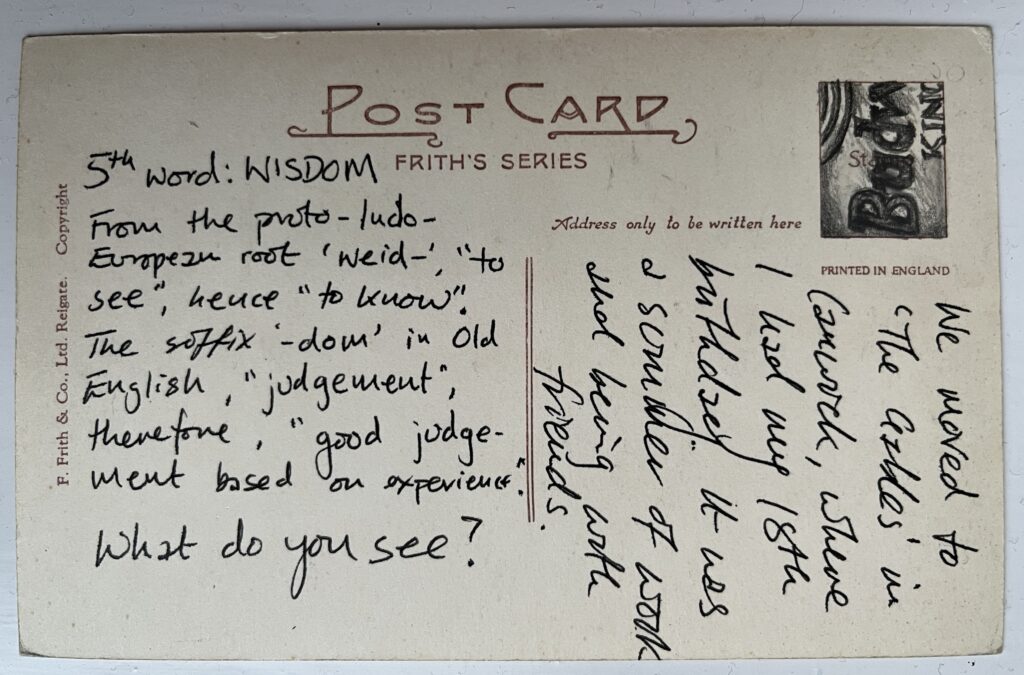 POST CARD
FRITH'S SERIES
F. Frith & Co., Ltd. Reigate. Copyright
5th word: WISDOM
From the proto-Indo-
European root 'weid-', "to
see", hence "to know".
The suffix '-dom' in Old
English, "judgement",
therefore, "good judge-
ment based on experience".
What do you see?
Address only to be written here
Bodm
KIN
PRINTED IN ENGLAND
We moved to
'The Gables' in
where
I had my 18th
birthday. it was
a summer of work
and being with
friends.